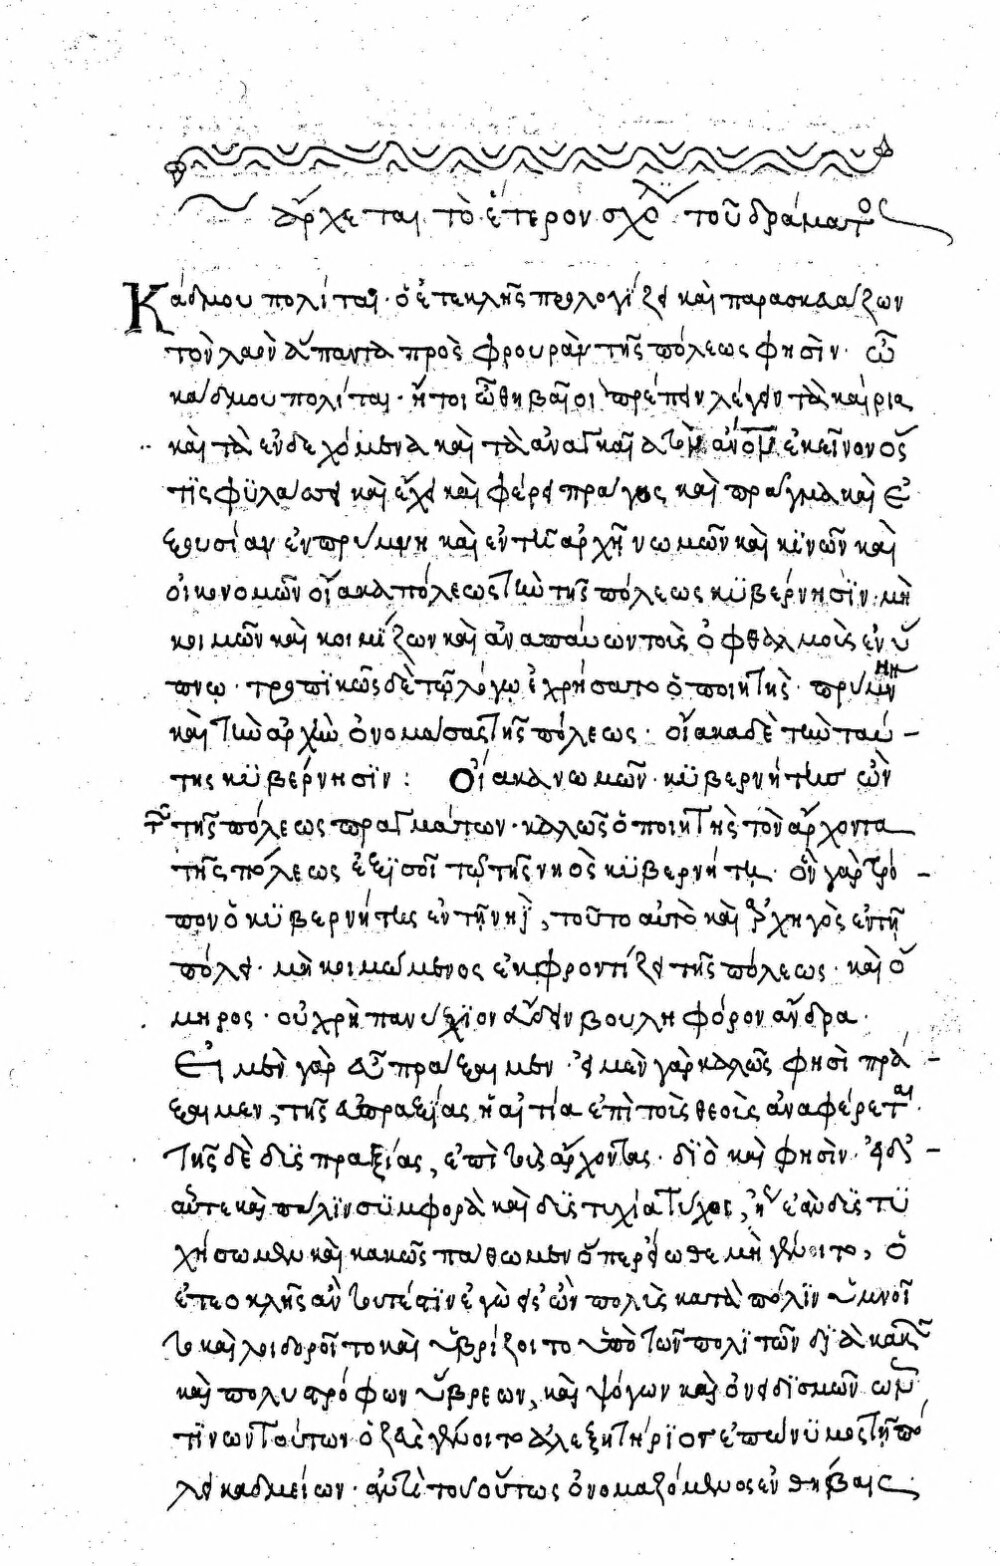 ἄρχεται τὸ ἕτερον σχο τοῦ δράματος
Κάδμου πολίται· ὁ ἐτεκλῆς προλογίζει καὶ παρασκευάζων
τὸν λαὸν ἅπαντα πρὸς φρουρὰν τῆς πόλεως φησὶν· ὦ
κάδμου πολίται· ἤτοι ὦ θηβαῖοι πρέπειν λέγειν τὰ καίρια
καὶ τὰ ἐνδεχόμενα καὶ τὰ ἀναγκαῖα ἐκεῖνον ὃς
τῒς φϋλάσσει καὶ ἔχει καὶ φέρει πράγος καὶ πράγμα καὶ ἐ
ξουσίαν ἐν πρύμνῃ καὶ ἐν τῆ ἀρχῆ νωμῶν καὶ κϊνῶν καὶ
οἰκονομῶν οἴακα πόλεως τὴν τῆς πόλεως κϋβέρνησϊν· μὴ
κοιμῶν καὶ κοιμίζων καὶ ἀναπαύων τοῖς ὀφθαλμοῖς ἐν ὕ
πνω· τροπϊκῶς δὲ τῶ λόγω ἐχρήσατο ὁ ποιητὴς· πρύμνην
καὶ τὴν ἀρχὴν ὀνομάσας τῆς πόλεως· οἴακα δὲ τὴν ταύ
της κϋβέρνησϊν: Οἴακα νωμῶν· κϋβερνήτης ὢν
τῶν τῆς πόλεως πραγμάτων· καλῶς ὁ ποιητὴς τὸν ἄρχοντα
τῆς πόλεως ἐξϊσοῖ τῶ τῆς νηὸς κϋβερνήτη· ὃν γὰρ τρό
πον ὁ κϋβερνήτης ἐν τῆ νηῒ, τοῦτο αὐτὸ καὶ ἀρχηγὸς ἐν τῆ
πόλει· μὴ κοιμώμενος ἐκφροντίζει τῆς πόλεως· καὶ ὅ
μηρος· οὐ χρὴ παννύχϊον εὕδειν βουληφόρον ἄνδρα·
Εἰ μὲν γὰρ εὖ πράξαιμεν· εἰ μὲν γὰρ καλῶς φησὶ πρά
ξαιμεν, τῆς εὐπραξίας ἡ αἰτία ἐπὶ τοῖς θεοῖς ἀναφέρεται·
τῆς δὲ δϋςπραξίας, ἐπὶ τοὺς ἄρχοντας· δϊὸ καὶ φησὶν· εἰ δ'
αὖτε καὶ πάλϊν σϋμφορὰ καὶ δϋςτυχία τύχοι, ἢ ἐὰν δϋςτϋ
χήσωμεν καὶ κακῶς πάθωμεν ὅπερ εἴωθε μὴ γένοιτο, ὁ
ἐτεοκλῆς ἂν τουτέστϊν ἐγὼ εἷς ὢν πολὺς κατὰ πόλϊν ὑμνοῖ
το καὶ λοιδοροῖτο καὶ ὑβρίζοιτο ὑπὸ τῶν πολϊτῶν δϊὰ κακῶν
καὶ πολυτρόφων ὕβρεων, καὶ ψόγων καὶ ὀνειδϊσμῶν
τϊνων τούτων ὁ ζεὺς γένοιτο ἀλεξητήρϊος ἐπώνϋμος τῆ πό
λει καδμείων· ἀντὶ τοῦ οὕτως ὀνομαζόμενος ἐν θήβαις